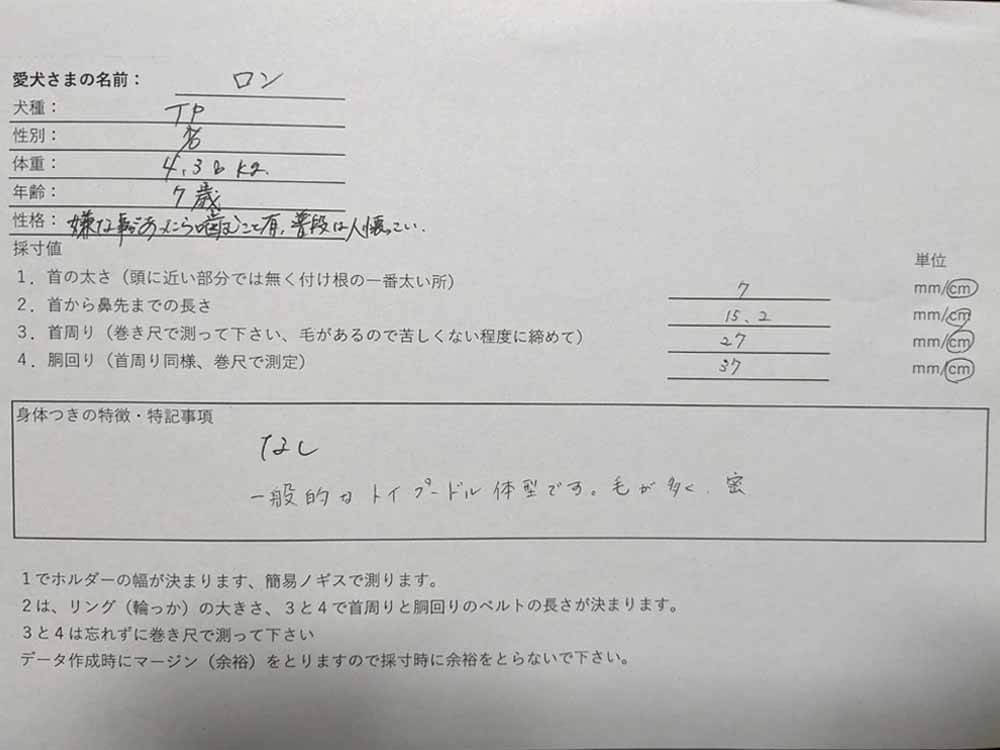 愛犬さまの名前： ロン
犬種： TP
性別：
体重： 4.38 kg.
年齢： 7歳
性格： 嫌な事があったら噛むこと有、普段は人懐っこい.
採寸値
単位
1．首の太さ（頭に近い部分では無く付け根の一番太い所） 7 mm/cm
2．首から鼻先までの長さ 15.2 mm/cm
3．首周り（巻き尺で測って下さい、毛があるので苦しくない程度に締めて） 27 mm/cm
4．胴回り（首周り同様、巻尺で測定） 37 mm/cm
身体つきの特徴・特記事項
なし
一般的なトイプードル体型です。毛が多く、密
1でホルダーの幅が決まります、簡易ノギスで測ります。
2は、リング（輪っか）の大きさ、3と4で首周りと胴回りのベルトの長さが決まります。
3と4は忘れずに巻き尺で測って下さい
データ作成時にマージン（余裕）をとりますので採寸時に余裕をとらないで下さい。